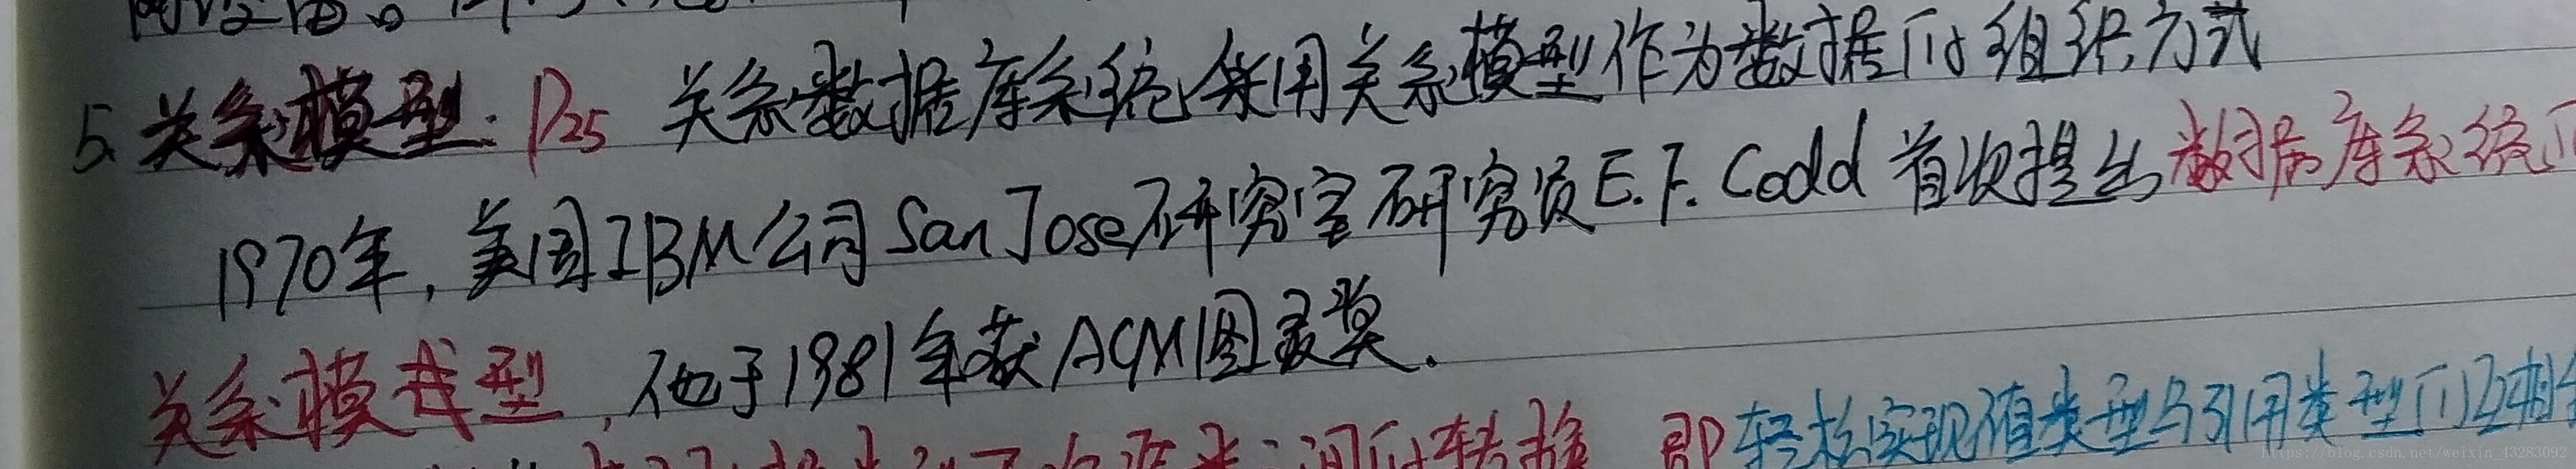 5. 关系模型: P25 关系数据库系统采用关系模型作为数据的组织方式
1970年,美国IBM公司San Jose研究室研究员E.F. Codd 首次提出数据库系统的
关系模式型,他于1981年获ACM图灵奖.
间的转换 即轻松实现值类型与引用类型的互相
https://blog.csdn.net/weixin_43283092